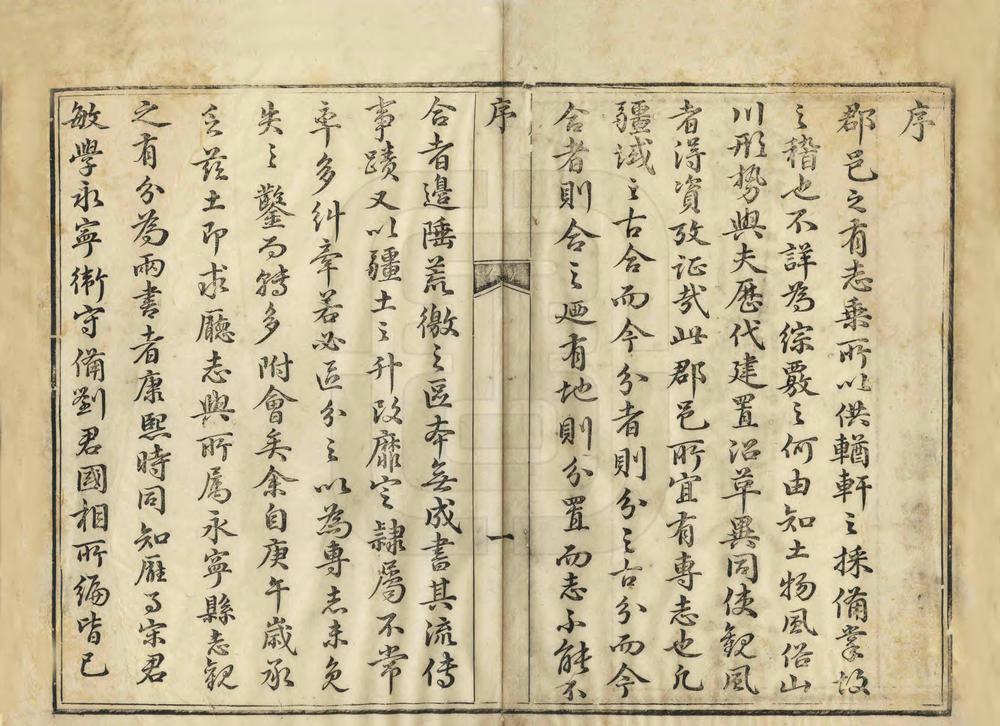 序
郡邑之有志乘所以供輶軒之採備掌故
之稽也不詳為綜覈之何由知土物風俗山
川形勢與夫歷代建置沿革異同使觀風
者得資攷证哉此郡邑所宜有專志也凡
疆域之古合而今分者則分之古分而今
合者則合之迺有地則分置而志不能不
序
一
合者邊陲荒徼之區本無成書其流傳
事蹟又以疆土之升改靡定隸屬不常
率多糾牽若必區分之以為專志未免
失之鑿而轉多附會矣余自庚午歲承
乏茲土即求廳志與所屬永寧縣志觀
之有分為兩書者康熙時同知龎公宋君
敏學永寧衛守備劉君國相所編皆已